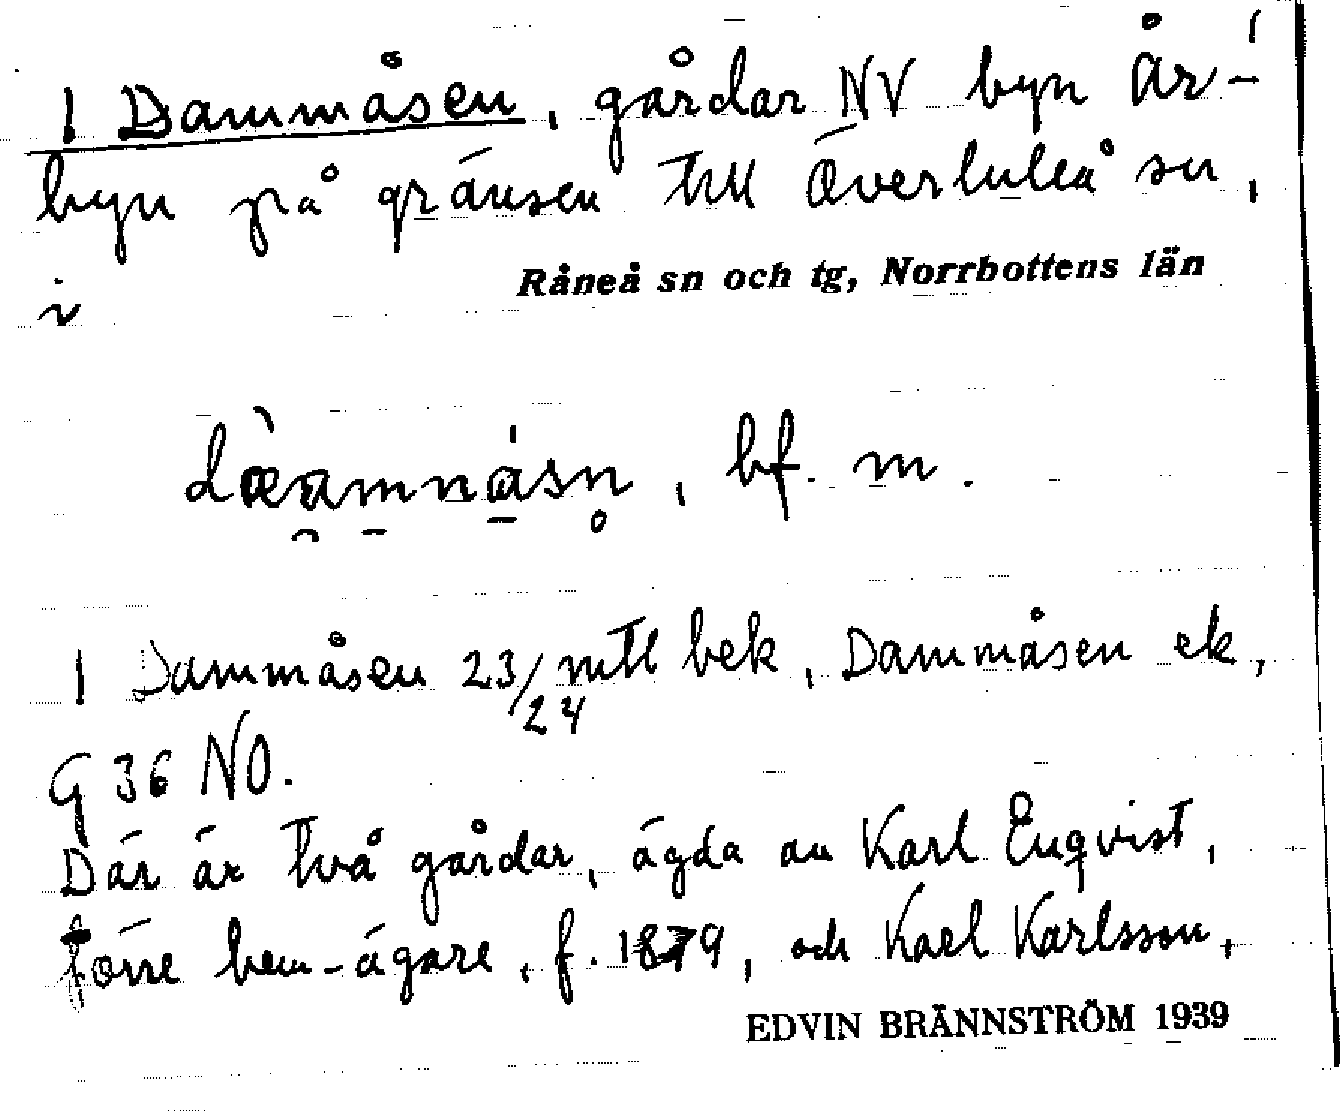 1 Dammåsen, gårdar NV byn År-
byn på gränsen till Överluleå sn,
i
Råneå sn och tg, Norrbottens län
dòeamnásn, bf. m.
1 Dammåsen 23/24 mtl bek, Dammåsen ek,
G 36 NO.
Där är två gårdar, ägda av Karl Enqvist,
förre hem-ägare, f. 1879, och Karl Karlsson,
EDVIN BRÄNNSTRÖM 1939